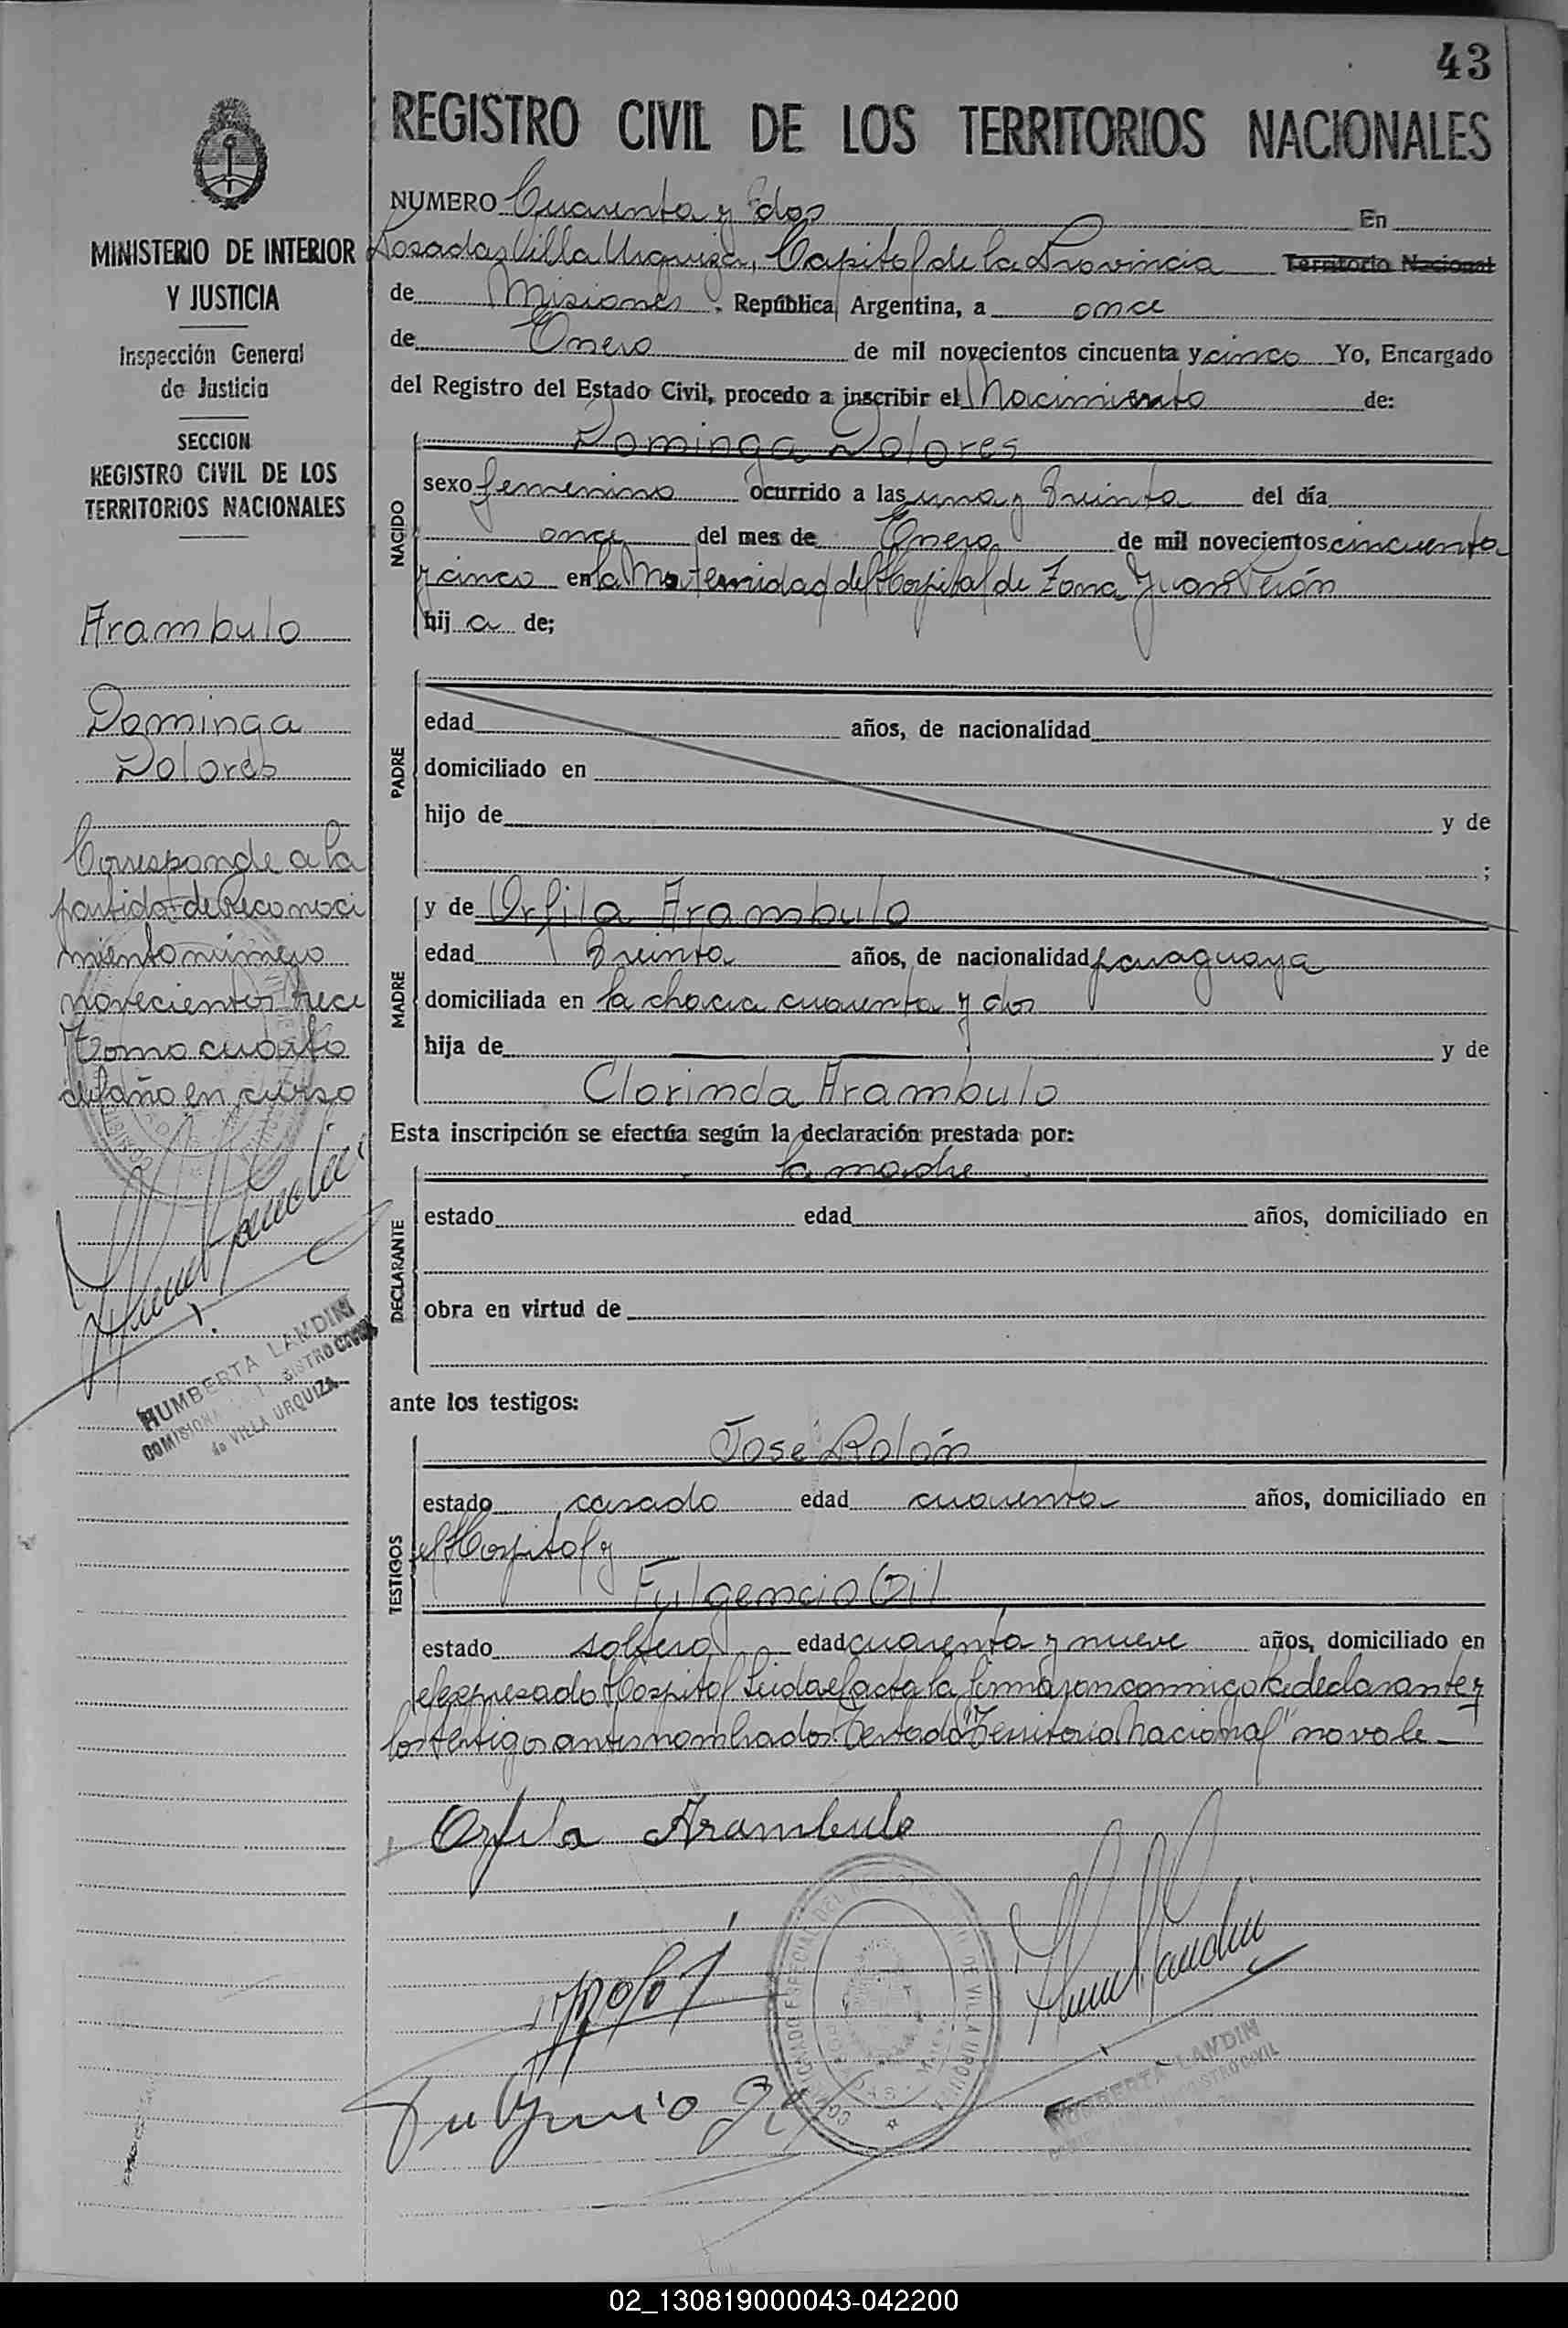 43
REGISTRO CIVIL DE LOS TERRITORIOS NACIONALES
MINISTERIO DE INTERIOR
Y JUSTICIA
Inspección General
de Justicia
SECCION
REGISTRO CIVIL DE LOS
TERRITORIOS NACIONALES
Arambulo
Dominga
Dolores
Corresponde a la
partida de Reconoci
miento número
novecientos trece
Tomo cuarto
del año en curso
HUMBERTA LANDINI
REGISTRO CIVIL
de VILLA URQUIZA
NUMERO Cuarenta y dos En
Posadas Villa Urquiza, Capital de la Provincia Territorio Nacional
de Misiones, República Argentina, a once
de Enero de mil novecientos cincuenta y cinco Yo, Encargado
del Registro del Estado Civil, procedo a inscribir el Nacimiento de:
NACIDO
Dominga Dolores
sexo femenino ocurrido a las una y treinta del día
once del mes de Enero de mil novecientos cincuenta
y cinco en la Maternidad del Hospital de Zona Juan Perón
hij a de;
PADRE
edad años, de nacionalidad
domiciliado en
hijo de y de
;
MADRE
y de Orfila Arambulo
edad treinta años, de nacionalidad paraguaya
domiciliada en la chacra cuarenta y dos
hija de y de
Clorinda Arambulo
Esta inscripción se efectúa según la declaración prestada por:
DECLARANTE
la madre
estado edad años, domiciliado en
obra en virtud de
ante los testigos:
TESTIGOS
José Rolón
estado casado edad cuarenta años, domiciliado en
el Hospital y
Fulgencio Gil
estado soltero edad cuarenta y nueve años, domiciliado en
el expresado Hospital Leida el acta la firmaron conmigo la declarante y
los testigos antes nombrados. Testado "Territorio Nacional" no vale -
Orfila Arambulo
Fulgencio Gil
HUMBERTA LANDINI
02_130819000043-042200